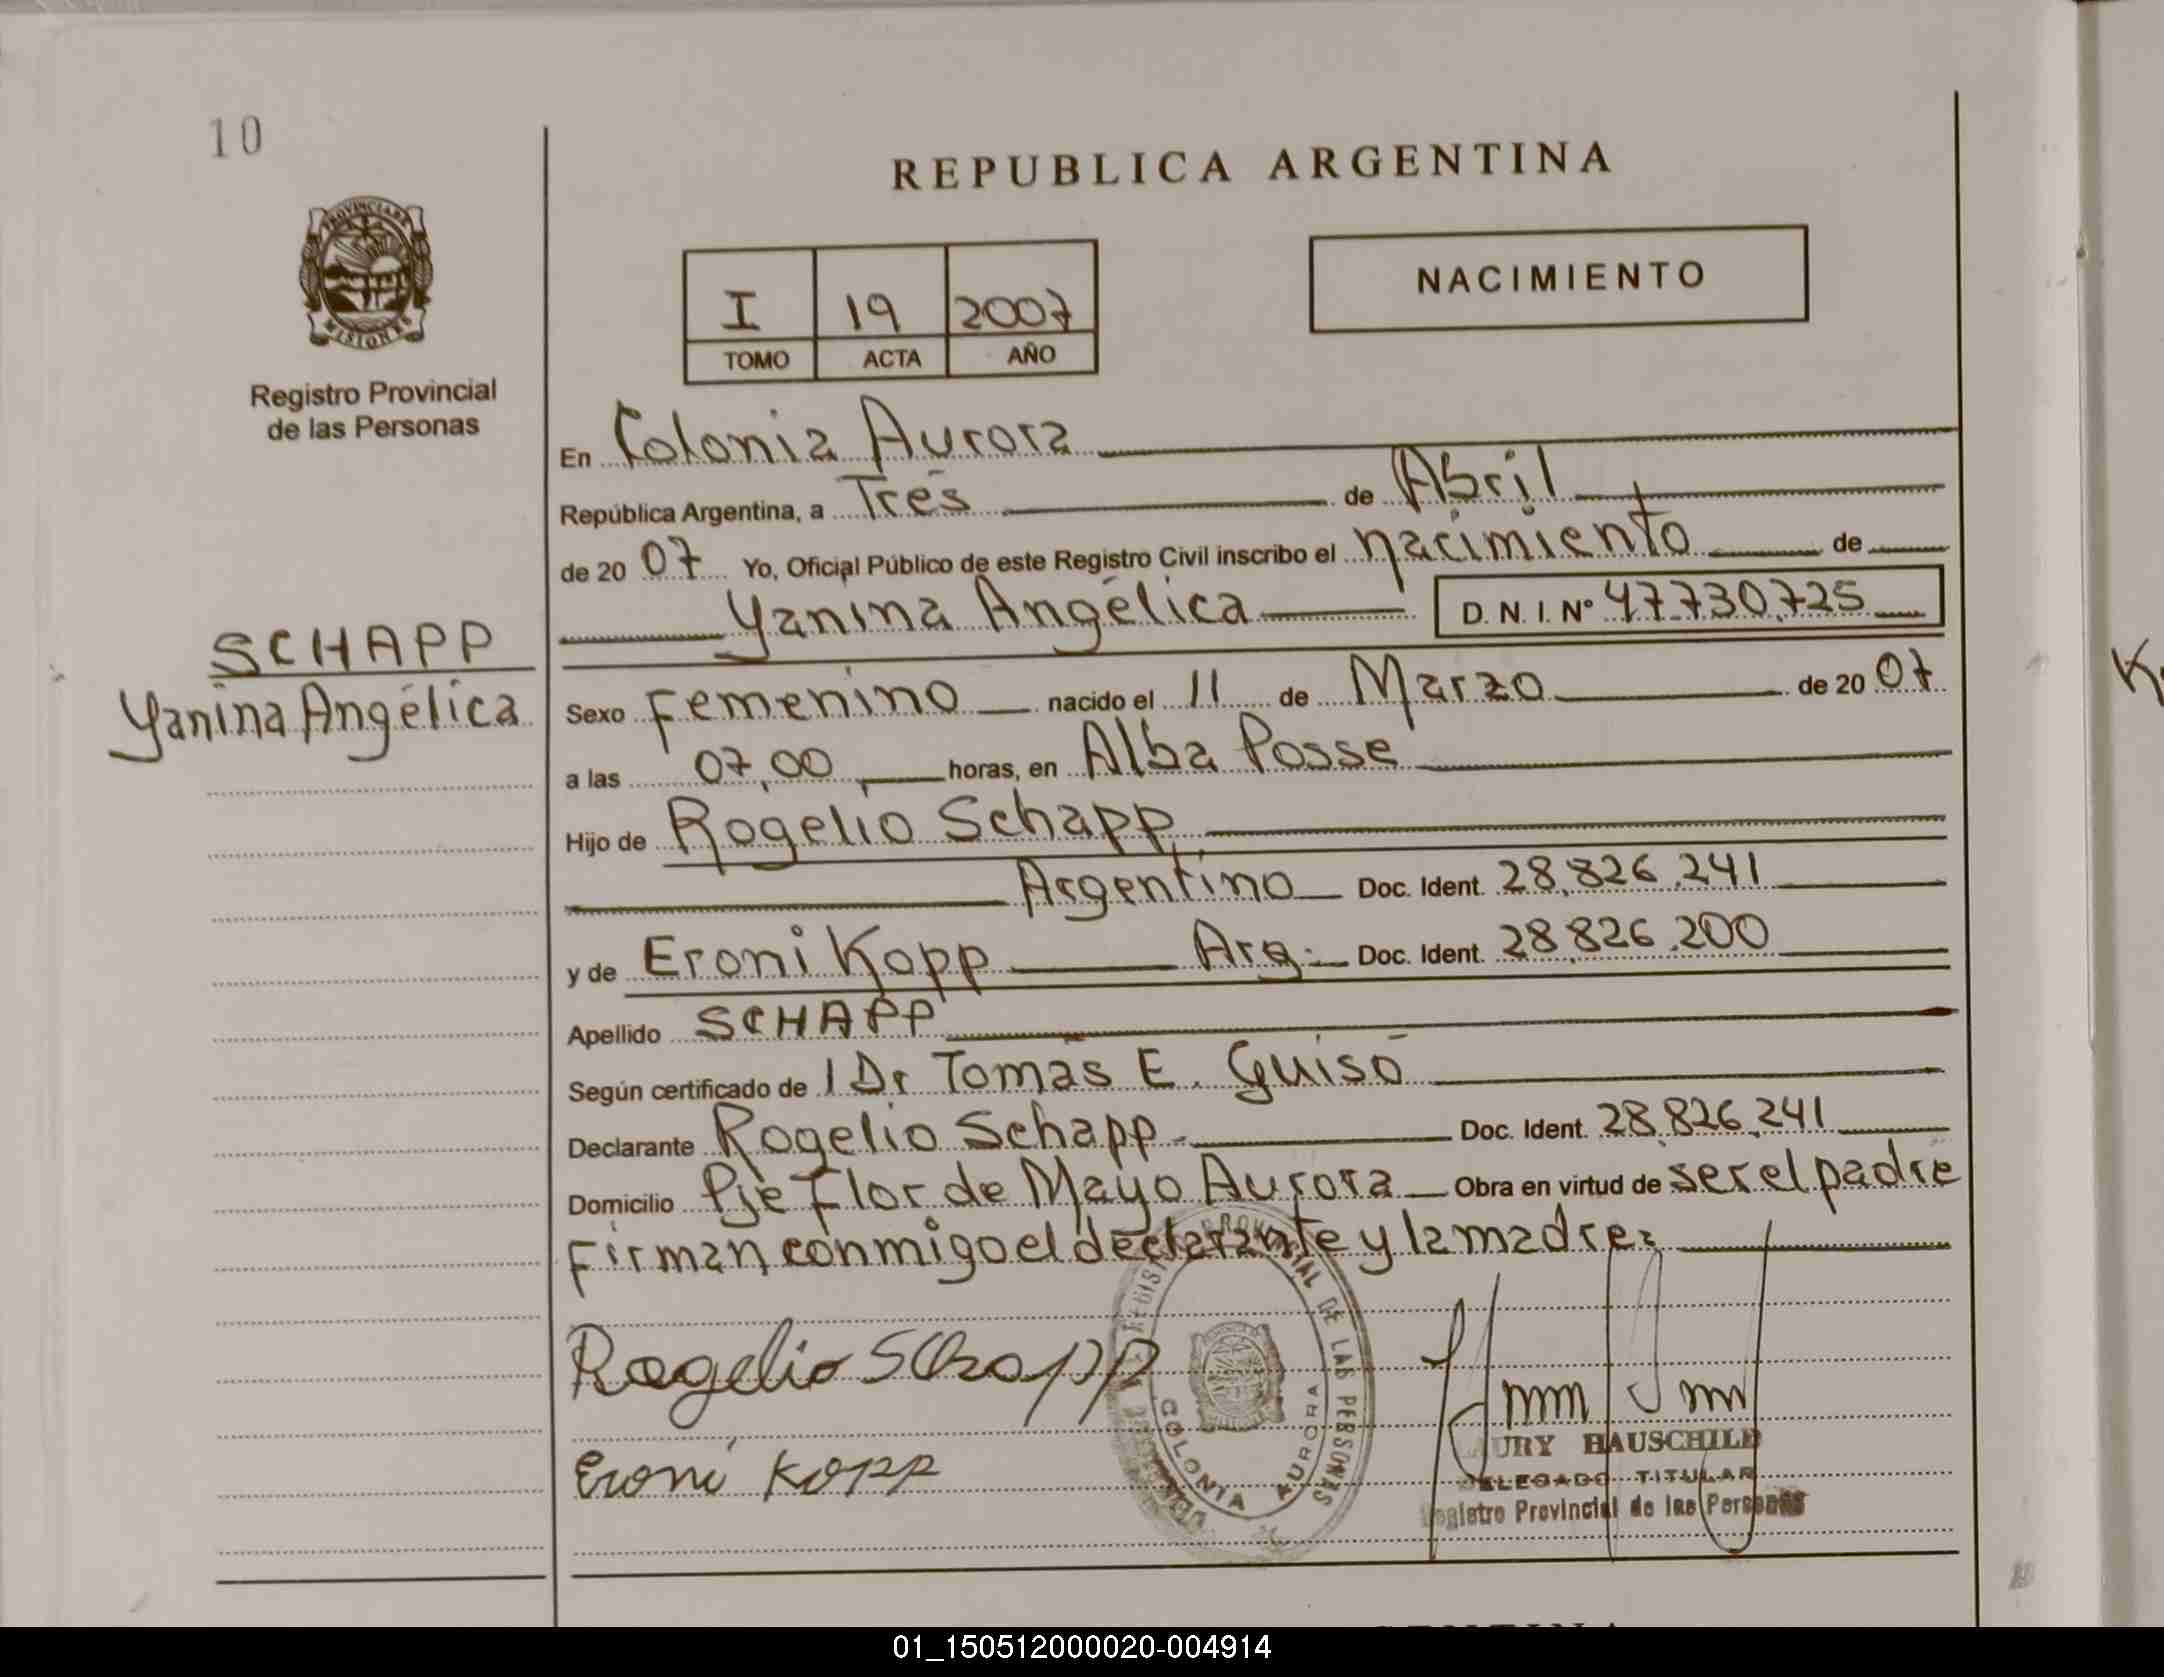 10
REPUBLICA ARGENTINA
PROVINCIA DE
MISIONES
Registro Provincial
de las Personas
NACIMIENTO
I 19 2007
TOMO ACTA AÑO
En Colonia Aurora
República Argentina, a Tres de Abril
de 20 07 Yo, Oficial Público de este Registro Civil inscribo el nacimiento de
Yanina Angélica D. N. I. Nº 47.730.725
SCHAPP
Yanina Angélica
Sexo Femenino nacido el 11 de Marzo de 20 07
a las 07,00 horas, en Alba Posse
Hijo de Rogelio Schapp
Argentino Doc. Ident. 28.826.241
y de Eroni Kopp Arg. Doc. Ident. 28.826.200
Apellido SCHAPP
Según certificado de 1 Dr Tomas E. Guiso
Declarante Rogelio Schapp Doc. Ident. 28.826.241
Domicilio Pje Flor de Mayo Aurora Obra en virtud de ser el padre
Firman conmigo el declarante y la madre:
Rogelio Schapp
Eroni Kopp
PROVINCIAL DE LAS PERSONAS
COLONIA AURORA
AURY HAUSCHILD
DELEGADO TITULAR
Registro Provincial de las Personas
01_150512000020-004914